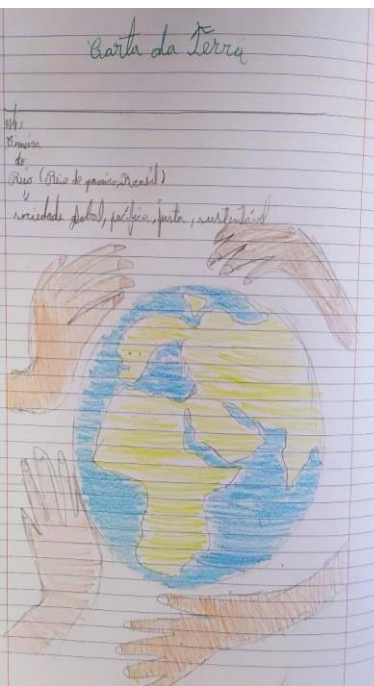 Carta da Terra
do
Rio (Rio de janeiro, Brasil)
sociedade global, pacífica, justa, sustentável